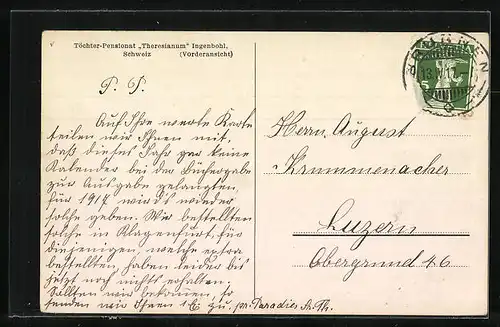 Töchter-Pensionat „Theresianum" Ingenbohl,
Schweiz (Vorderansicht)
P. T.
Auf Ihre werte Karte
teilen wir Ihnen mit,
daß dieses Jahr gar keine
Kalender bei der Büchergabe
zur Ausgabe gelangten,
für 1917 wird's wieder
solche geben. Wir bestellten
solche in Klagenfurt, für
diejenigen, welche extra
bestellten, haben leider bis
jetzt noch nichts erhalten.
Sollten wir bekommen, so
senden wir Ihnen 1 E. zu. pr. Paradies St. Th.
Herrn August
Krummenacher
Luzern
Obergrund 46
BRUNNEN